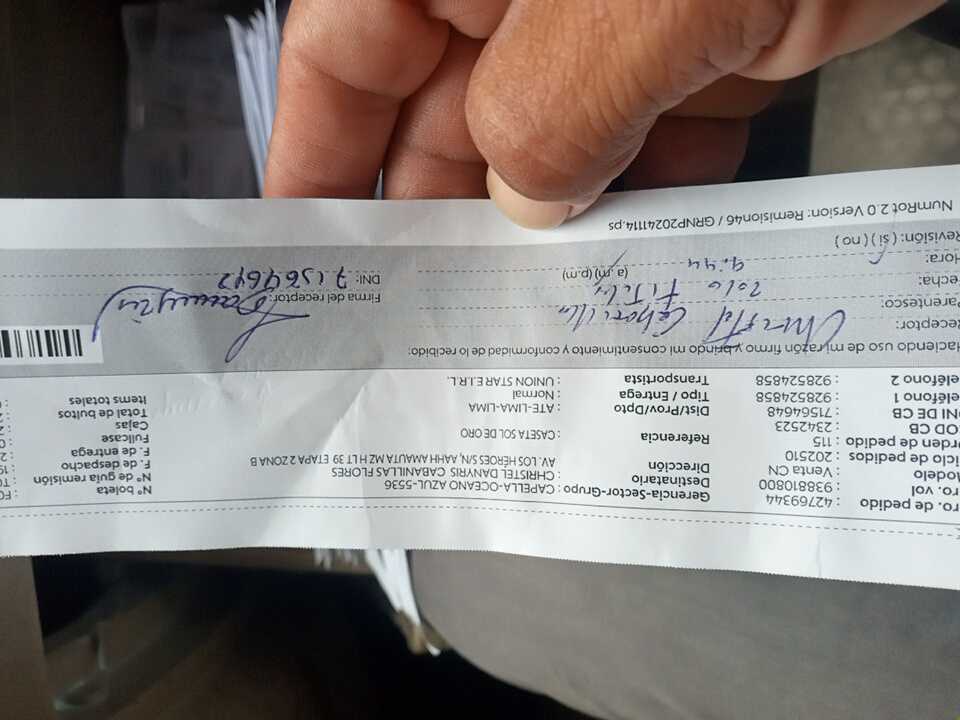 ro. de pedido : 42769344 Gerencia-Sector-Grupo : CAPELLA-OCEANO AZUL-5536 N° boleta
ro. vol : 938810800 Destinatario : CHRISTEL DANYRIS CABANILLAS FLORES N° de guía remisión
Modelo : Venta CN Dirección : AV. LOS HÉROES, S/N, AAHH AMAUTA MZ H LT 39 ETAPA 2 ZONA B F. de despacho
iclo de pedidos : 202510 F. de entrega
rden de pedido : 115 Referencia : CASETA SOL DE ORO Fullcase
COD CB Cajas
DNI DE CB : 71564648 Dist/Prov/Dpto : ATE-LIMA-LIMA Total de bultos
eléfono 1 : 928524858 Tipo / Entrega : Normal Items totales
eléfono 2 : 928524858 Transportista : UNION STAR E.I.R.L.
Haciendo uso de mi razón firmo y brindo mi consentimiento y conformidad de lo recibido:
Receptor: Christel Cabanilla
Parentesco: Firma del receptor:
echa: DNI:
Hora: 9:44 (a.m) (p.m)
Revisión: ( si ) ( no )
NumRot 2.0 Version: Remision46 / GRNP20241114.ps